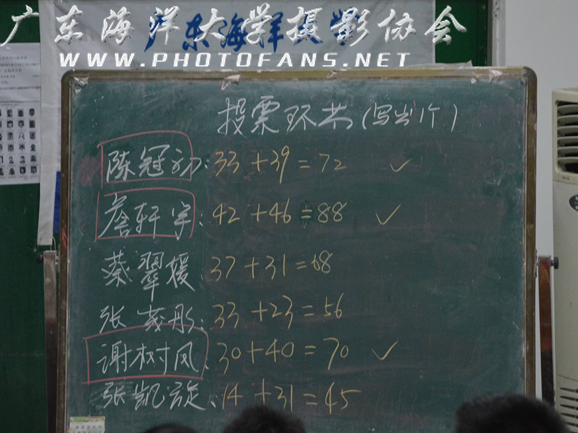 广东海洋大学摄影协会
WWW.PHOTOFANS.NET
投票环节(写出1个)
陈冠初:33+39=72 ✓
詹轩宇:42+46=88 ✓
蔡翠媛:37+31=68
张彧彤:33+23=56
谢树风:30+40=70 ✓
张凯旋:14+31=45